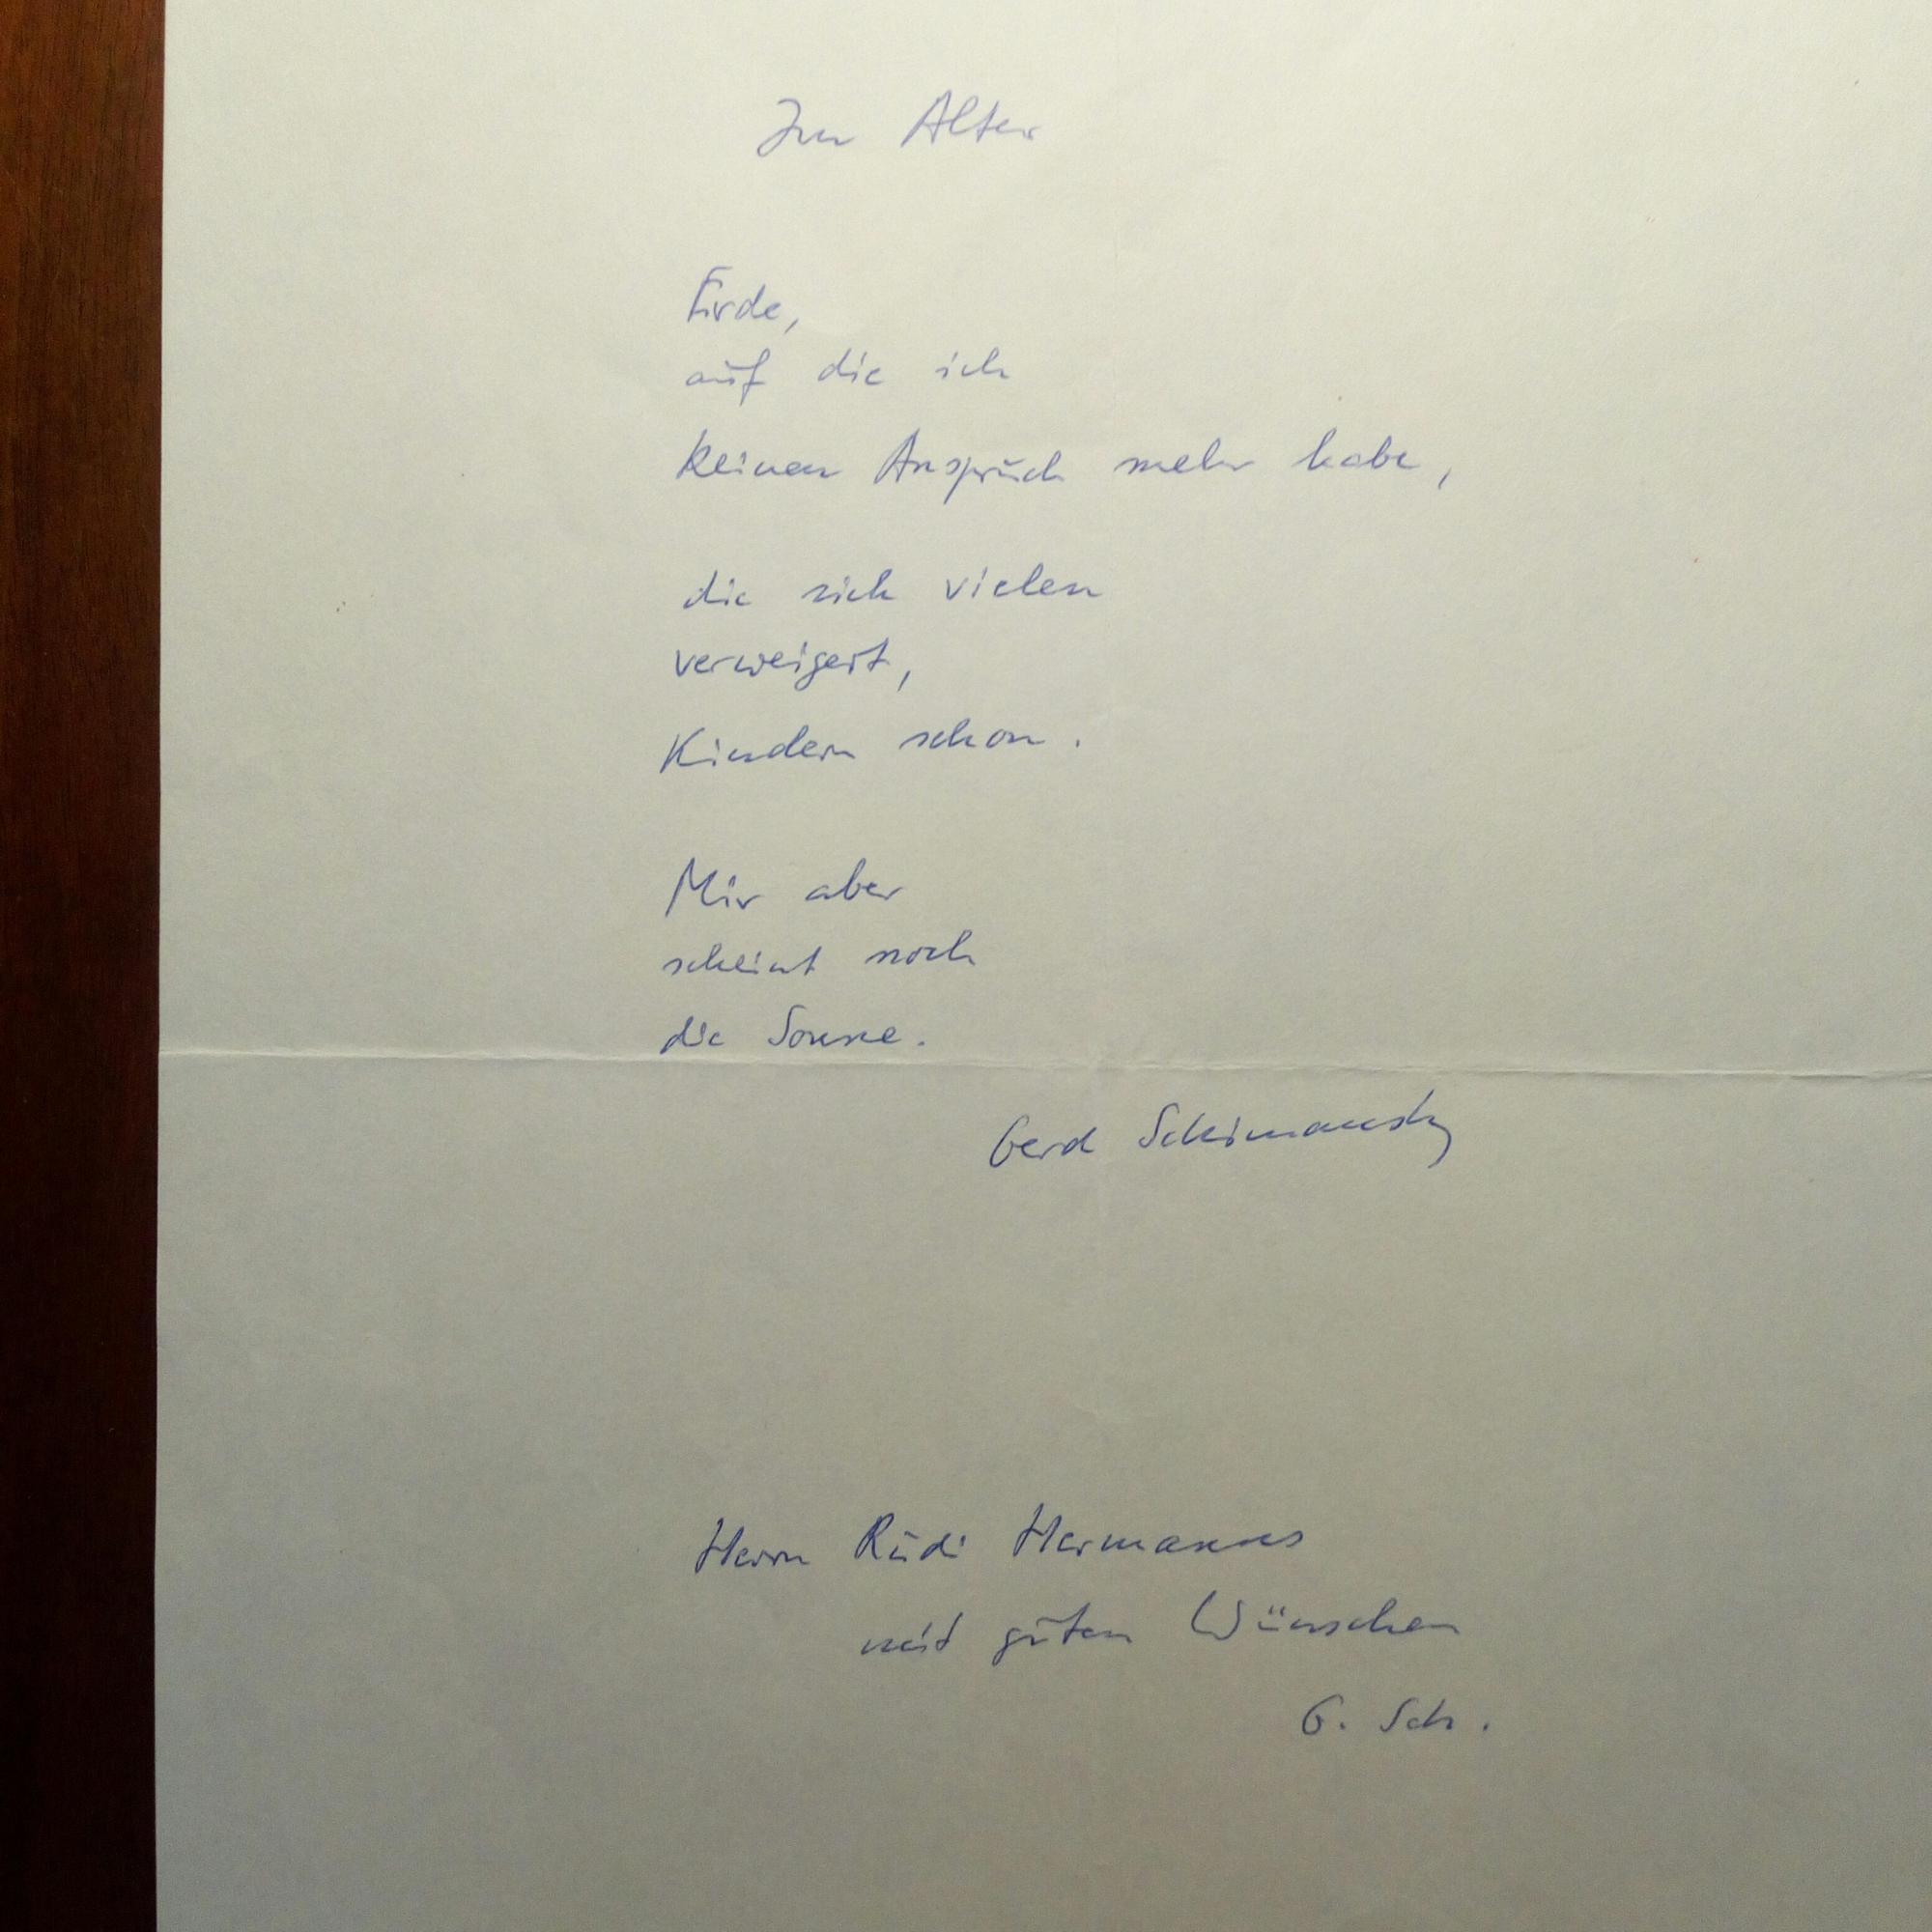 Im Alter
Erde,
auf die ich
keinen Anspruch mehr habe,
die sich vielen
verweigert,
Kindern schon.
Mir aber
scheint noch
die Sonne.
Gerd Schimansky
Herrn Rudi Hermanns
mit guten Wünschen
G. Sch.